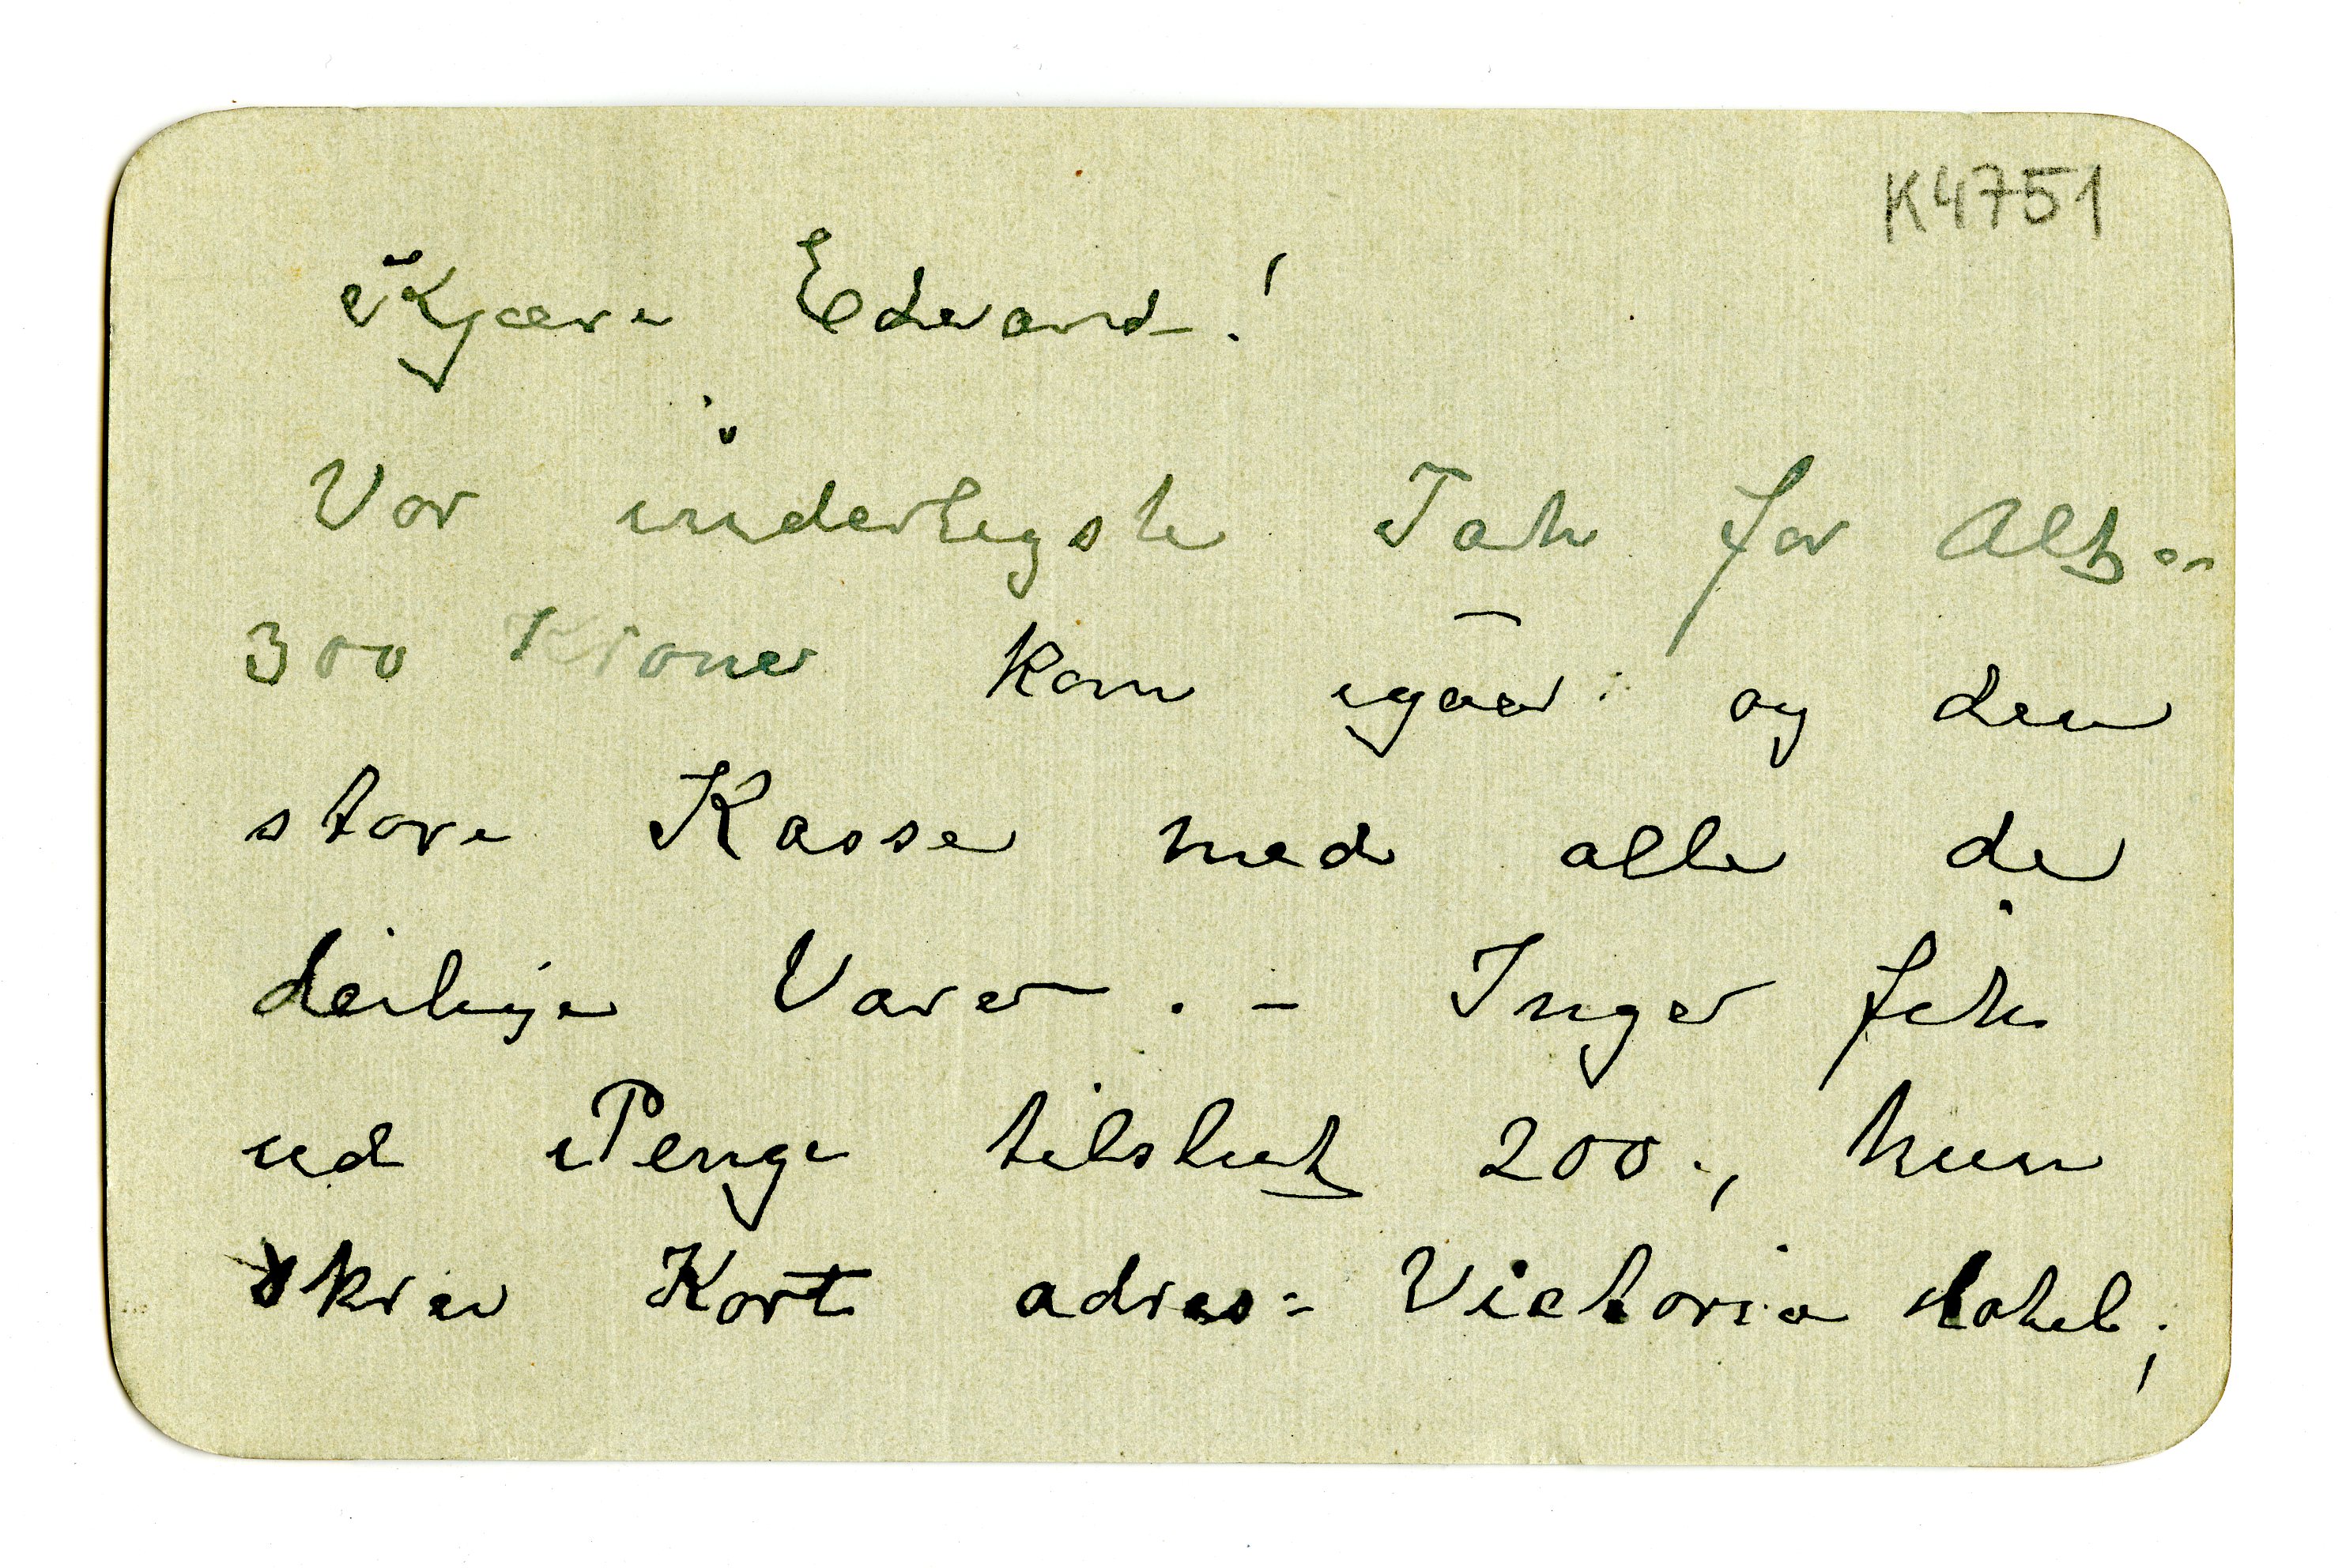 K4751
Kjære Edvard!
Vor inderligste Tak for Alt –
300 Kroner kom igaar og den
store Kasse med alle de
deilige Varer. – Inger fik
ud Penge tilslut 200, hun
skrev Kort adres: Victoria Hotel;